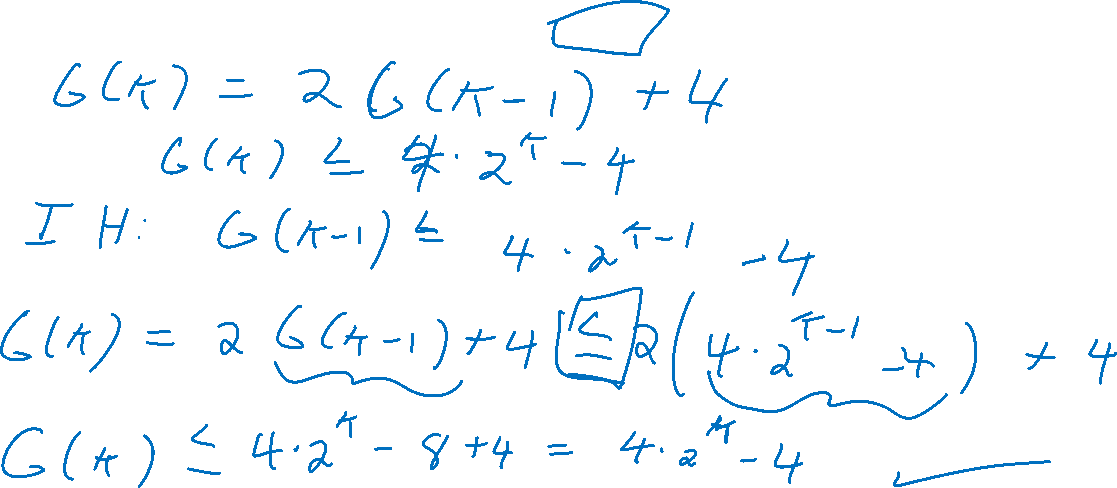 G(k) = 2 G(k-1) + 4
G(k) ≤ 4 · 2^k - 4
IH: G(k-1) ≤ 4 · 2^{k-1} - 4
G(k) = 2 G(k-1) + 4 ≤ 2(4 · 2^{k-1} - 4) + 4
G(k) ≤ 4 · 2^k - 8 + 4 = 4 · 2^k - 4